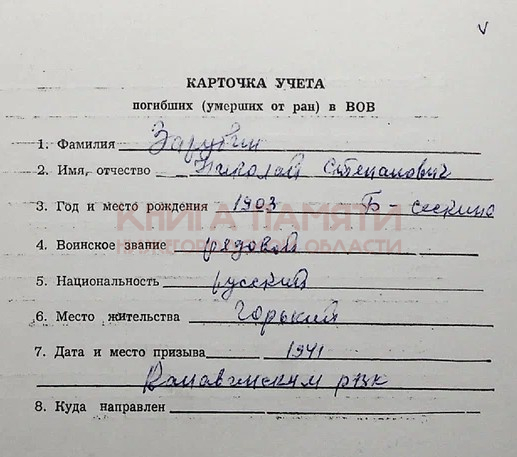 КАРТОЧКА УЧЕТА
погибших (умерших от ран) в ВОВ
1. Фамилия Зарубин
2. Имя, отчество Николай Степанович
3. Год и место рождения 1903 Б-сескино
КНИГА ПАМЯТИ
НИЖЕГОРОДСКОЙ ОБЛАСТИ
4. Воинское звание рядовой
5. Национальность русский
6. Место жительства Горький
7. Дата и место призыва 1941
Канавинским рвк
8. Куда направлен